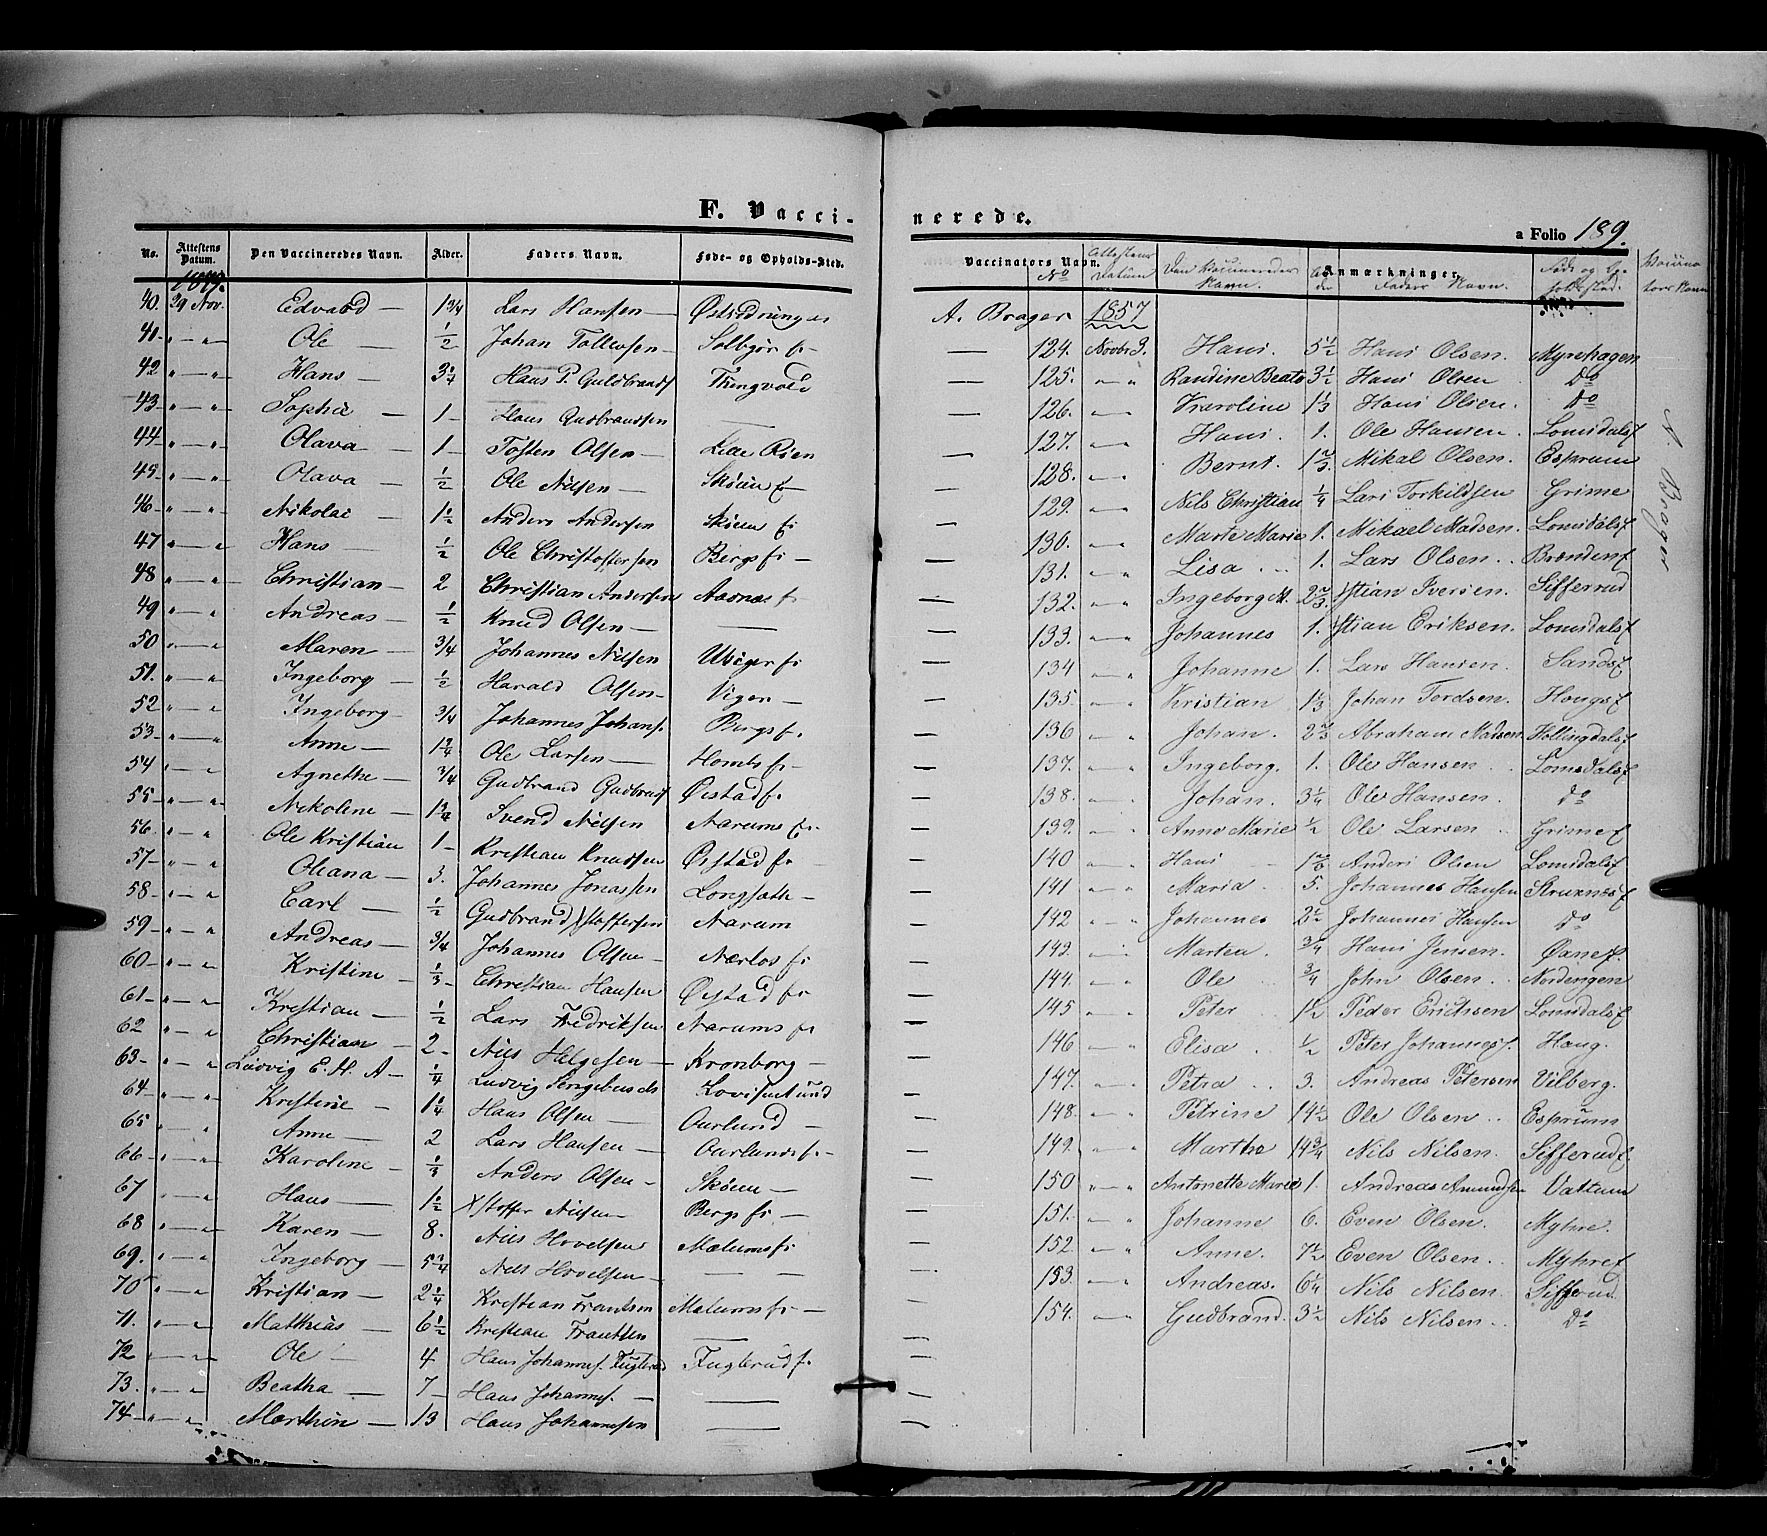 F. Vacci-
No. Attestens Datum. Den Vaccineredes Navn. Alder. Faders Navn. Føde- og Opholds-Sted.
40. 29 Nov. Edvard — 1 3/4 Lars Hansen —
41 " — " Ole — 1/2 Johan
42 " — " Hans — 3 1/4 Hans P. Guldbrands Thingvold
43 " — " Sophie — 1 — Hans Gudbrandsen —
44 " — " Olava — 1 — Tosten Olsen —
45 " — " Olava — 1/2 Ole Nilsen — Skøien f
46 " — " Nikolai — 1 1/2 Anders Andersen Skøien f
47 " — " Hans — 1/2 Ole Christoffersen Bergs f —
48 " — " Christian — 2 Christian Andersen
49 " — " Andreas — 1/2 Knud Olsen — —
50 " — " Maren — 3/4 Johannes Nilsen
51. " — " Ingeborg — 1/2 Harald Olsen —
52 " — " Ingeborg 3/4 Johannes Johans. Bergs f.
53 — " — " Anne — 1 3/4 Ole Larsen —
54 " — " Agnethe — 3/4 Gudbrand Gudbrands Øistad f.
55 " — " Nikoline — 1 3/4 Svend Nilsen Narums f.
56 " — " Ole Kristian 1 — Kristian Knudsen Øistad f.
57 " — " Oleana — 3. Johannes Jonassen
58 — " — " Carl — 1/2 Gudbrand Xstoffersen Narum
59 " — " Andreas — 3/4 Johannes Olsen —
60 — " — " Kristine — 1/3 Christian Hansen Øistad f.
61 — " — " Kristian — 1/2 Lars Fredriksen Narums f.
62 " — " Christian — 2 — Nils Helgesen — Kronborg —
63 — " — " Ludvig E. H. A — 1/4 Ludvig
64 — " — " Kristine — 1 1/4 Hans Olsen — Aurlund —
65 " Anne — 2 Lars Hansen — Aurlunds f. —
66 " — " Karoline — 1/3 Anders Olsen — Skøien —
67 " — " Hans — 1 1/2 Xstoffer Nilsen — Bergs f. —
68 " — " Karen — 8. Nils Hovelsen Mælums f.
69. " — " Ingeborg — 5 3/4 Nils Hovelsen — —
70 " — " Kristian — 2 1/4 Kristian Frantsen Melums f. —
71. " — " Mathias — 6 1/2 Kristian Frantsen —
72 " — " Ole — 4 Hans Johannes. Fuglerud Fuglerud f.
73. " — " Beatha — 7 — Hans Johannes. — —
74 — " — " Marthin — 13 Hans Johannesen —
nerede.
a Folio 189.
Vaccinators Navn. No Attestens Datum Den Vaccineredes Navn. Anmærkninger. Faders Navn.
A. Brager 1857
— 124. Novbr 9. Hans. 5 1/2 Hans Olsen. Myrehagen
— 125. " — " Randine Beate 3 1/2 Hans Olsen Do
— 126. " — " Karoline 1 1/3 Hans Olsen. Do
— 127. " — " Hans. 1. Ole Hansen. Lomsdalsf
— 128. " — " Bernt. 1 2/3 Mikal Olsen. Esprum
— 129. " — " Nils Christian 1/4 Lars Torkildsen Grime
— 130. " — " Marte Marie 1. Mikael Madsen. Lomsdalsf
— 131. " — " Lisa 1. Lars Olsen Brændenf
— 132. " — " Ingeborg M. 2 2/3 Xstian Iversen. Sifferud
— 133. " — " Johannes 1. Xstian Eriksen. Lomsdalsf
— 134 " — " Johanne 1. Lars Hansen. Sandsf
— 135. " — " Kristian 1 1/3 Johan Tordsen. Hougsf
— 136 " — " Johan. 2 2/3 Abraham Madsen
— 137. " — " Ingeborg. 1. Ole Hansen Lomsdalsf
— 138. " — " Johan. 3 1/4 Ole Hansen. Do
— 139. " — " Anne Marie 1/2 Ole Larsen Grimef
— 140 " — " Hans Anders Olsen Lomsdalsf
— 141 " — " Maria 5. Johannes Hansen
— 142 " — " Johannes 2 1/2 Johannes Hansen Do
— 143. " — " Martea 3/4 Hans Jensen.
— 144. " — " Ole 3/4 John Olsen Nordengen
— 145 " — " Peter 1 1/2 Peder Erichsen Lomsdalsf
— 146 " — " Elisa 1/2 Peter Johannes. Haug.
— 147. " — " Petra 3. Andreas Petersen Vilberg.
— 148. " — " Petrine 14 1/2 Ole Olsen Esprum
— 149. " — " Marthe 14 3/4 Nils Nilsen. Sifferudf.
— 150 " — " Antonette Marie 1. Andreas Amundsen Vattum
— 151. " — " Johanne 6. Even Olsen. Myhre.
— 152. " — " Anne. 7 1/2 Even Olsen. Myhref
— 153. " — " Andreas. 6 1/4 Nils Nilsen. Sifferud.
— 154. " — " Gudbrand. 3 1/2 Nils Nilsen. Do
A Brager